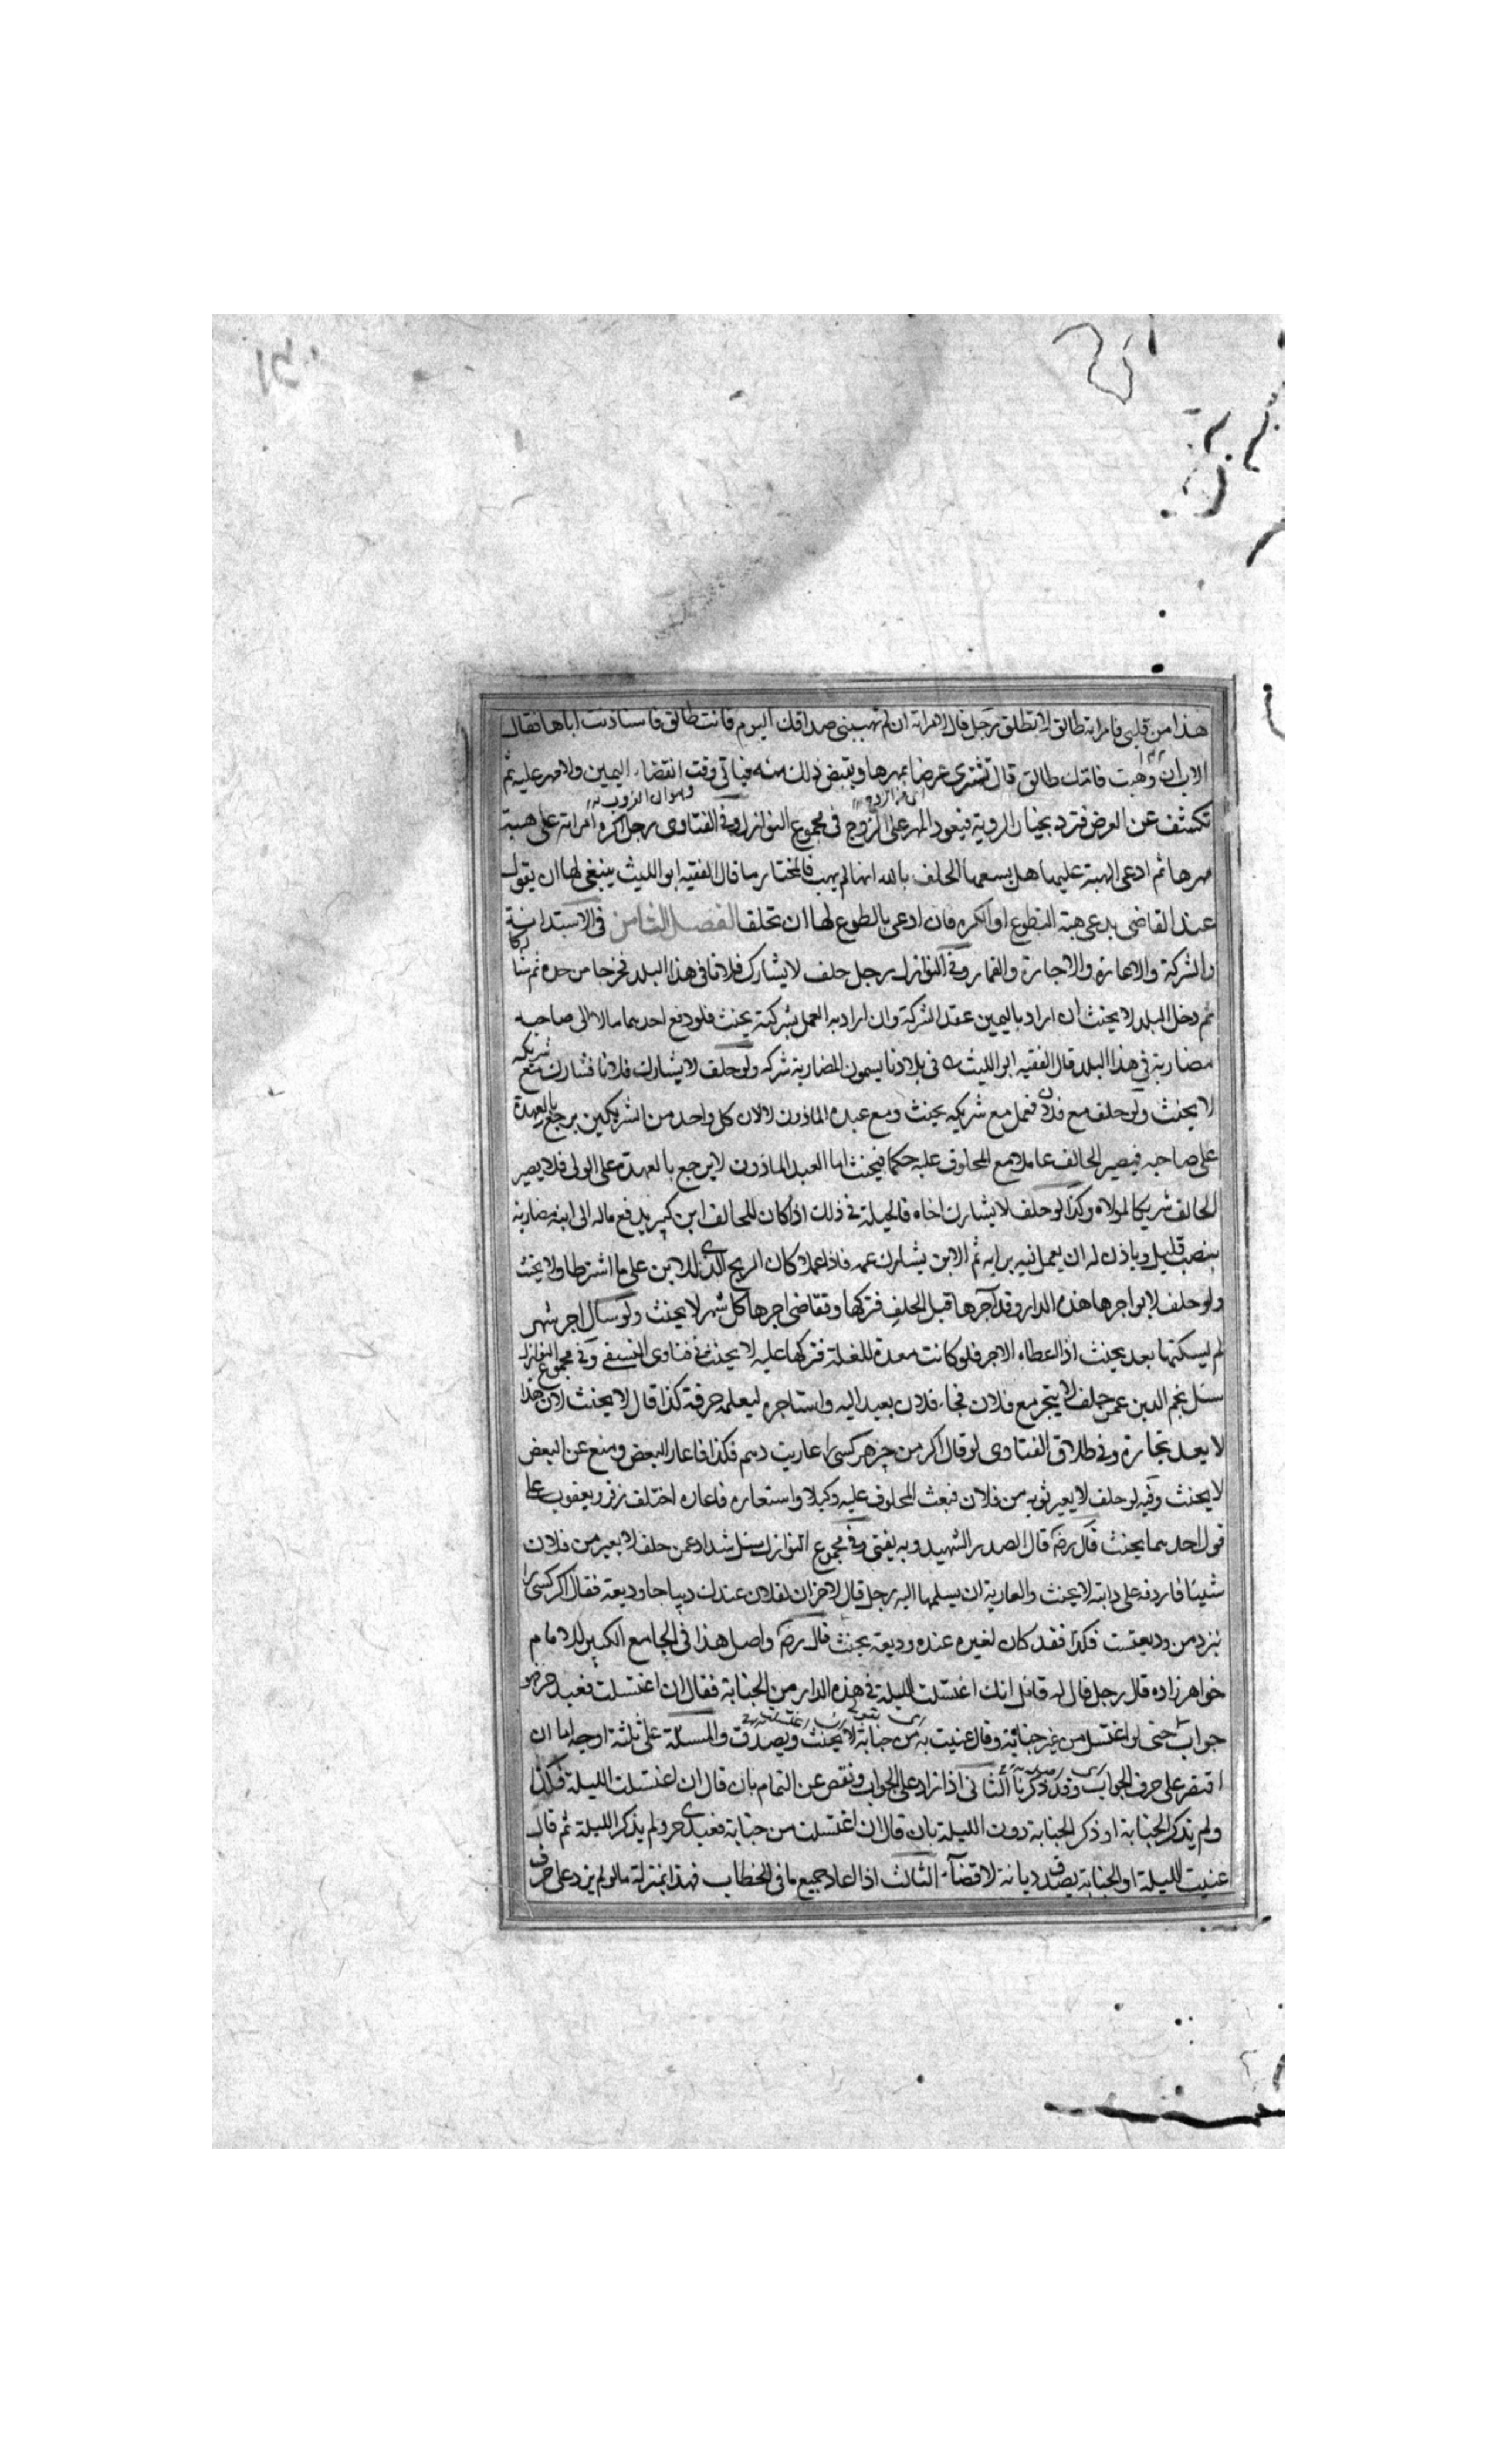 هذا من قلبى فامراته طالق لا تطلق رجل قال لامراته ان لم تهب بنى صداقك اليوم فانت طالق فاستاذنت اباها فقال
الاب ان وهبت فامك طالق قال تشترى عرضا بمهرها ويقبض ذلك منه فياتى وقت انقضاء اليمين ولا مهر عليه ثم
تكشف عن العرض فترد بخيار الروية فيعود المهر على الزوج فى مجموع النوازل وفى الفتاوى رجل اكره امراته على هبة
مهرها ثم ادعى الهبة عليها هل يسعها الحلف بالله انها لم يهب فالمختار ما قال الفقيه ابو الليث ينبغى لها ان يقول
عند القاضى يدعى هبة التطوع او الكره فان ادعى بالطوع لها ان تحلف الفصل الثامن فى الاستدانة
والشركة والاعارة والاجارة والقمار وفى النوازل رجل حلف لا يشارك فلانا فى هذا البلد فخرجا من حده ثم شاركا
ثم دخل البلد لا يحنث ان اراد باليمين عقد الشركة وان اراد به العمل بشركته يحنث فلو دفع احدهما مالا الى صاحبه
مضاربة فى هذا البلد قال الفقيه ابو الليث فى بلادنا يسمون المضاربة شركة ولو حلف لا يشارك فلانا فشارك مع شريكه
لا يحنث ولو حلف مع فلان فعمل مع شريكه يحنث ومع عبده الماذون لا لان كل واحد من الشريكين يرجع بالعهدة
على صاحبه فيصير الحالف عاملا مع المحلوف عليه حكما فيحنث اما العبد الماذون لا يرجع بالعهدة على المولى فلا يصير
الحالف شريكا لمولاه وكذا لو حلف لا يشارك اخاه فالحيلة فى ذلك اذا كان للحالف ابن كبير يدفع ماله الى ابنه مضاربة
بنصيب قليل وياذن له ان يعمل فيه برايه ثم الابن يشارك عمه فاذا عملا كان الربح الذى للابن على ما اشترطا ولا يحنث
ولو حلف لا يواجرها هذه الدار وقد آجرها قبل الحلف فتركها وتقاضى اجرها كل شهر لا يحنث ولو سال اجر شهر
لم يسكنها بعد يحنث اذا اعطاه الاجر فلو كانت معدة للغلة فتركها عليه لا يحنث فى فتاوى النسفى وفى مجموع النوازل
سئل نجم الدين عمن حلف لا يتجر مع فلان فجاء فلان بعبد اليه واستاجره ليعلمه حرفة كذا قال لا يحنث لان هذا
لا يعد تجارة وفى طلاق الفتاوى لو قال اكر من چيز هر كسى را عاريت دهم فكذا فاعار البعض ومنع عن البعض
لا يحنث وفيه لو حلف لا يعير ثوبه من فلان فبعث المحلوف عليه وكيلا واستعاره فاعاره اختلف زفر ويعقوب على
قول احدهما يحنث قال رضـ قال الصدر الشهيد وبه يفتى وفى مجموع النوازل سئل شداد عمن حلف لا يعير من فلان
شيئا فاردفه على دابته لا يحنث والعارية ان يسلمها اليه رجل قال لاخر ان لفلان عندك ديباجا وديعة فقال اكر كسى را
نزد من وديعتست فكذا فقد كان لغيره عنده وديعة يحنث قال رضـ واصل هذا فى الجامع الكبير للامام
خواهرزاده قال رجل قال له قائل انك اغتسلت الليلة فى هذه الدار من الجنابة فقال ان اغتسلت فعبده حر فهو
جواب حتى لو اغتسل من غير جنابة وقال عنيت به من جنابة لا يحنث ويصدق والمسئلة على ثلثة اوجه اما ان
اقتصر على حرف الجواب وقد ذكرنا الثانى اذا زاد على الجواب ونقص عن التمام بان قال ان اغتسلت الليلة فكذا
ولم يذكر الجنابة او ذكر الجنابة دون الليلة بان قال ان اغتسلت من جنابة فعبدى حر ولم يذكر الليلة ثم قال
عنيت الليلة او الجنابة يصدق ديانة لا قضآء الثالث اذا اعاد جميع ما فى الخطاب فهذا بمنزلة ما لو لم يزد على حرف